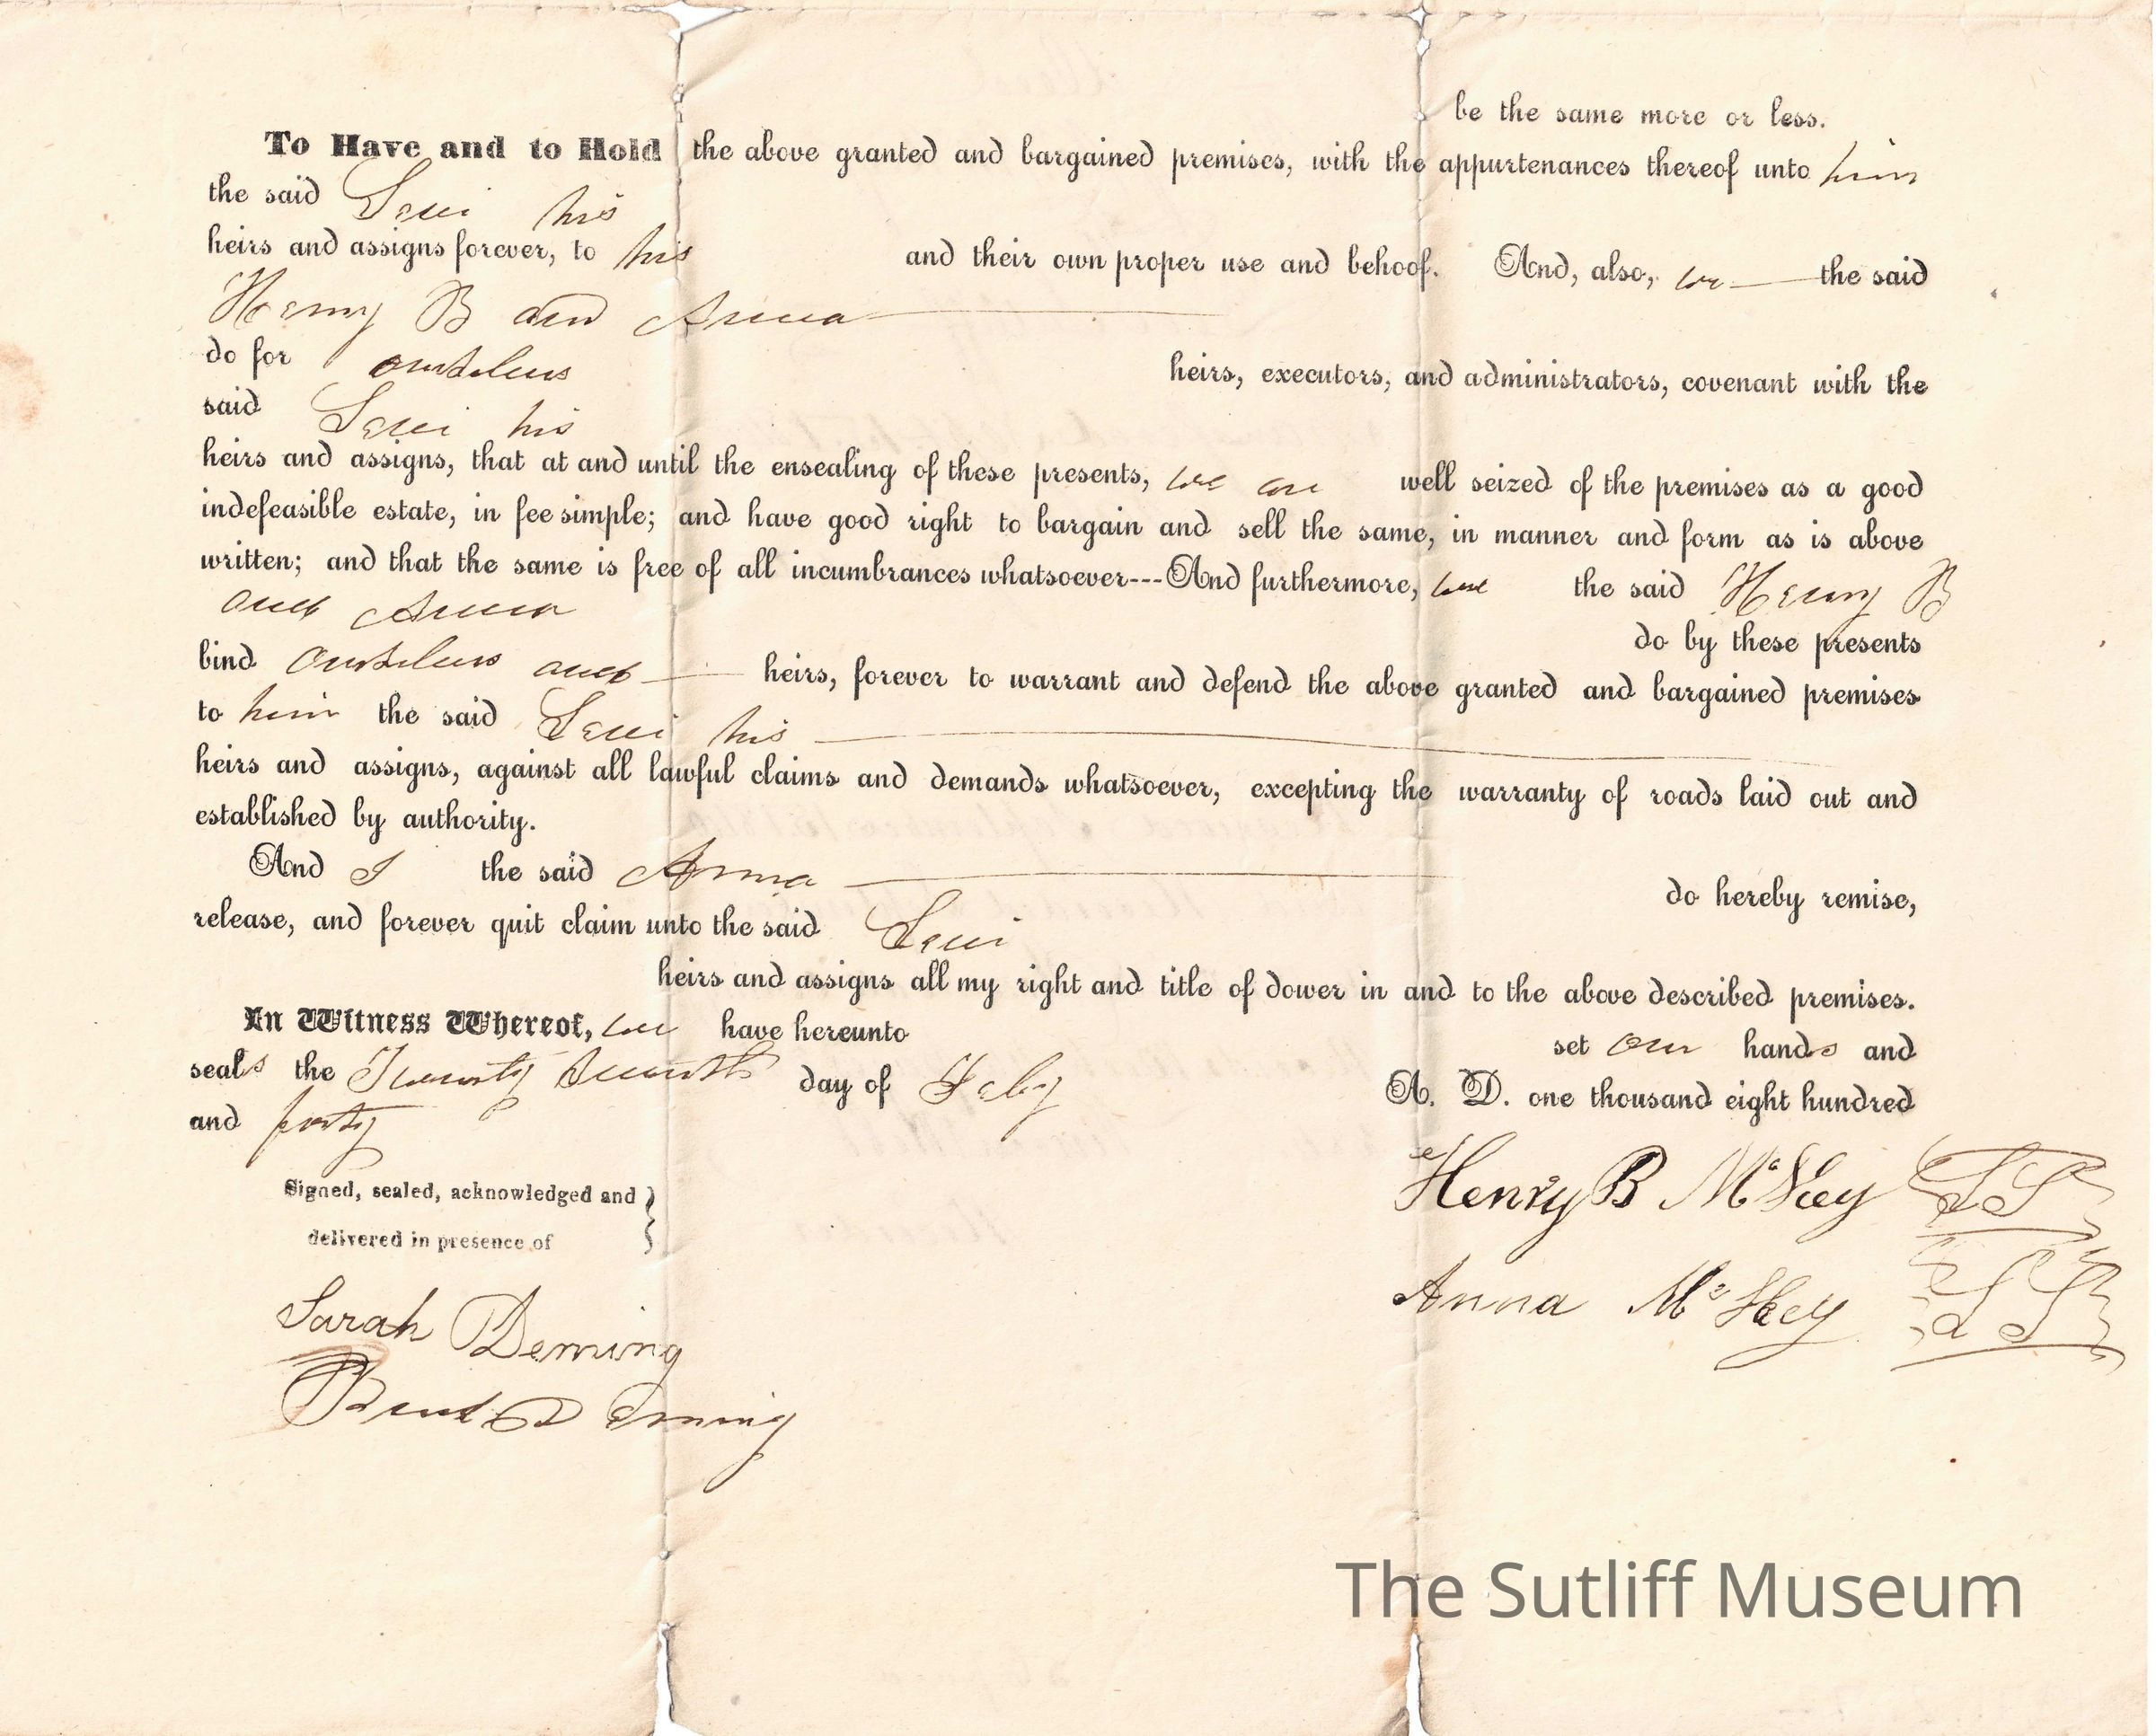 be the same more or less.
To Have and to Hold the above granted and bargained premises, with the appurtenances thereof unto him
the said Levi his
heirs and assigns forever, to his and their own proper use and behoof. And, also, we the said
Henry B and Anna
do for ourselves heirs, executors, and administrators, covenant with the
said Levi his
heirs and assigns, that at and until the ensealing of these presents, we are well seized of the premises as a good
indefeasible estate, in fee simple; and have good right to bargain and sell the same, in manner and form as is above
written; and that the same is free of all incumbrances whatsoever---And furthermore, we the said Henry B
and Anna
do by these presents
bind ourselves and heirs, forever to warrant and defend the above granted and bargained premises
to him the said Levi his
heirs and assigns, against all lawful claims and demands whatsoever, excepting the warranty of roads laid out and
established by authority.
And I the said Anna do hereby remise,
release, and forever quit claim unto the said Levi
heirs and assigns all my right and title of dower in and to the above described premises.
In Witness Whereof, we have hereunto set our hands and
seals the Twenty Seventh day of Feby A. D. one thousand eight hundred
and forty
Signed, sealed, acknowledged and
delivered in presence of
Henry B
Anna
LS
LS
Sarah Deming
Deming
The Sutliff Museum